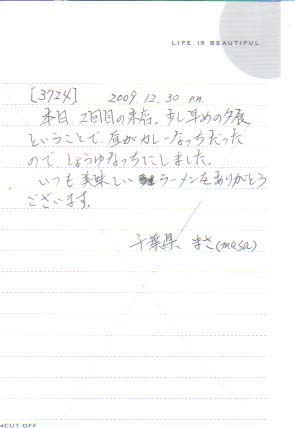 LIFE IS BEAUTIFUL
[3724] 2009.12.30 P.M.
本日、2回目の来店。少し早めの夕食
ということで、昼がカレーなっちだった
ので、しょうゆなっちにしました。
いつも美味しいラーメンをありがとう
ございます。
千葉県 まさ(masa)
CUT OFF